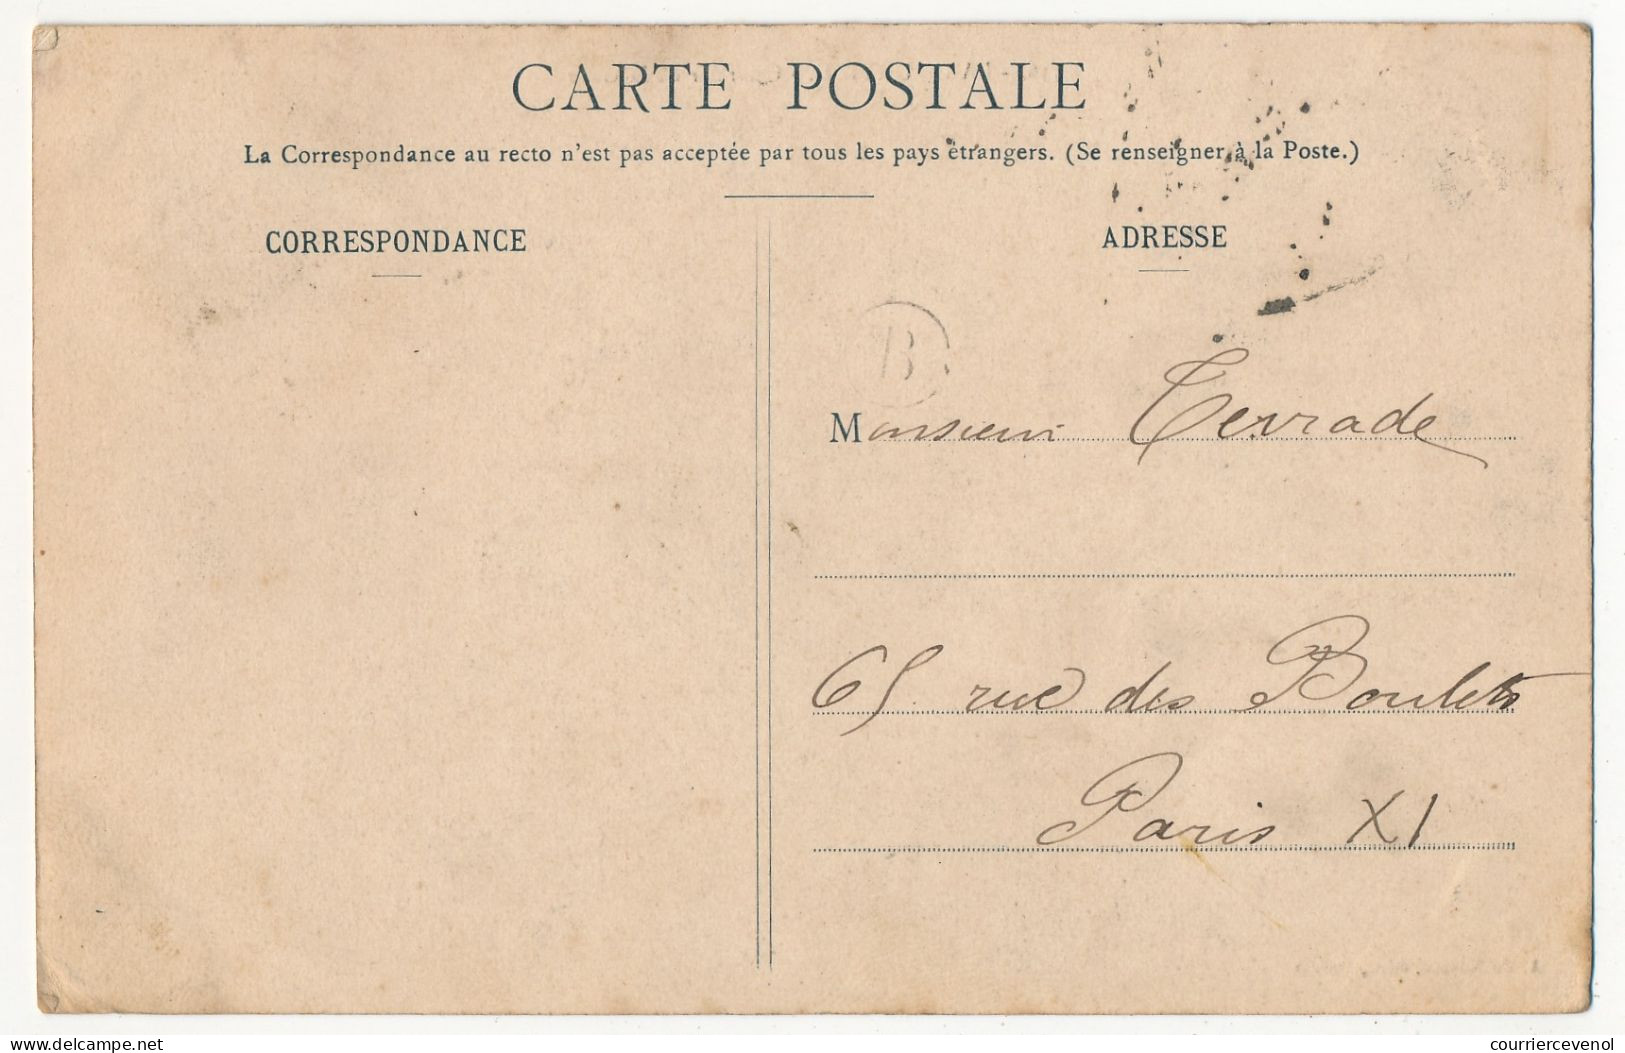 CARTE POSTALE
La Correspondance au recto n'est pas acceptée par tous les pays étrangers. (Se renseigner à la Poste.)
CORRESPONDANCE
ADRESSE
B
Monsieur Terrade
65 rue des Boulets
Paris XI
delcampe.net
courriercevenol